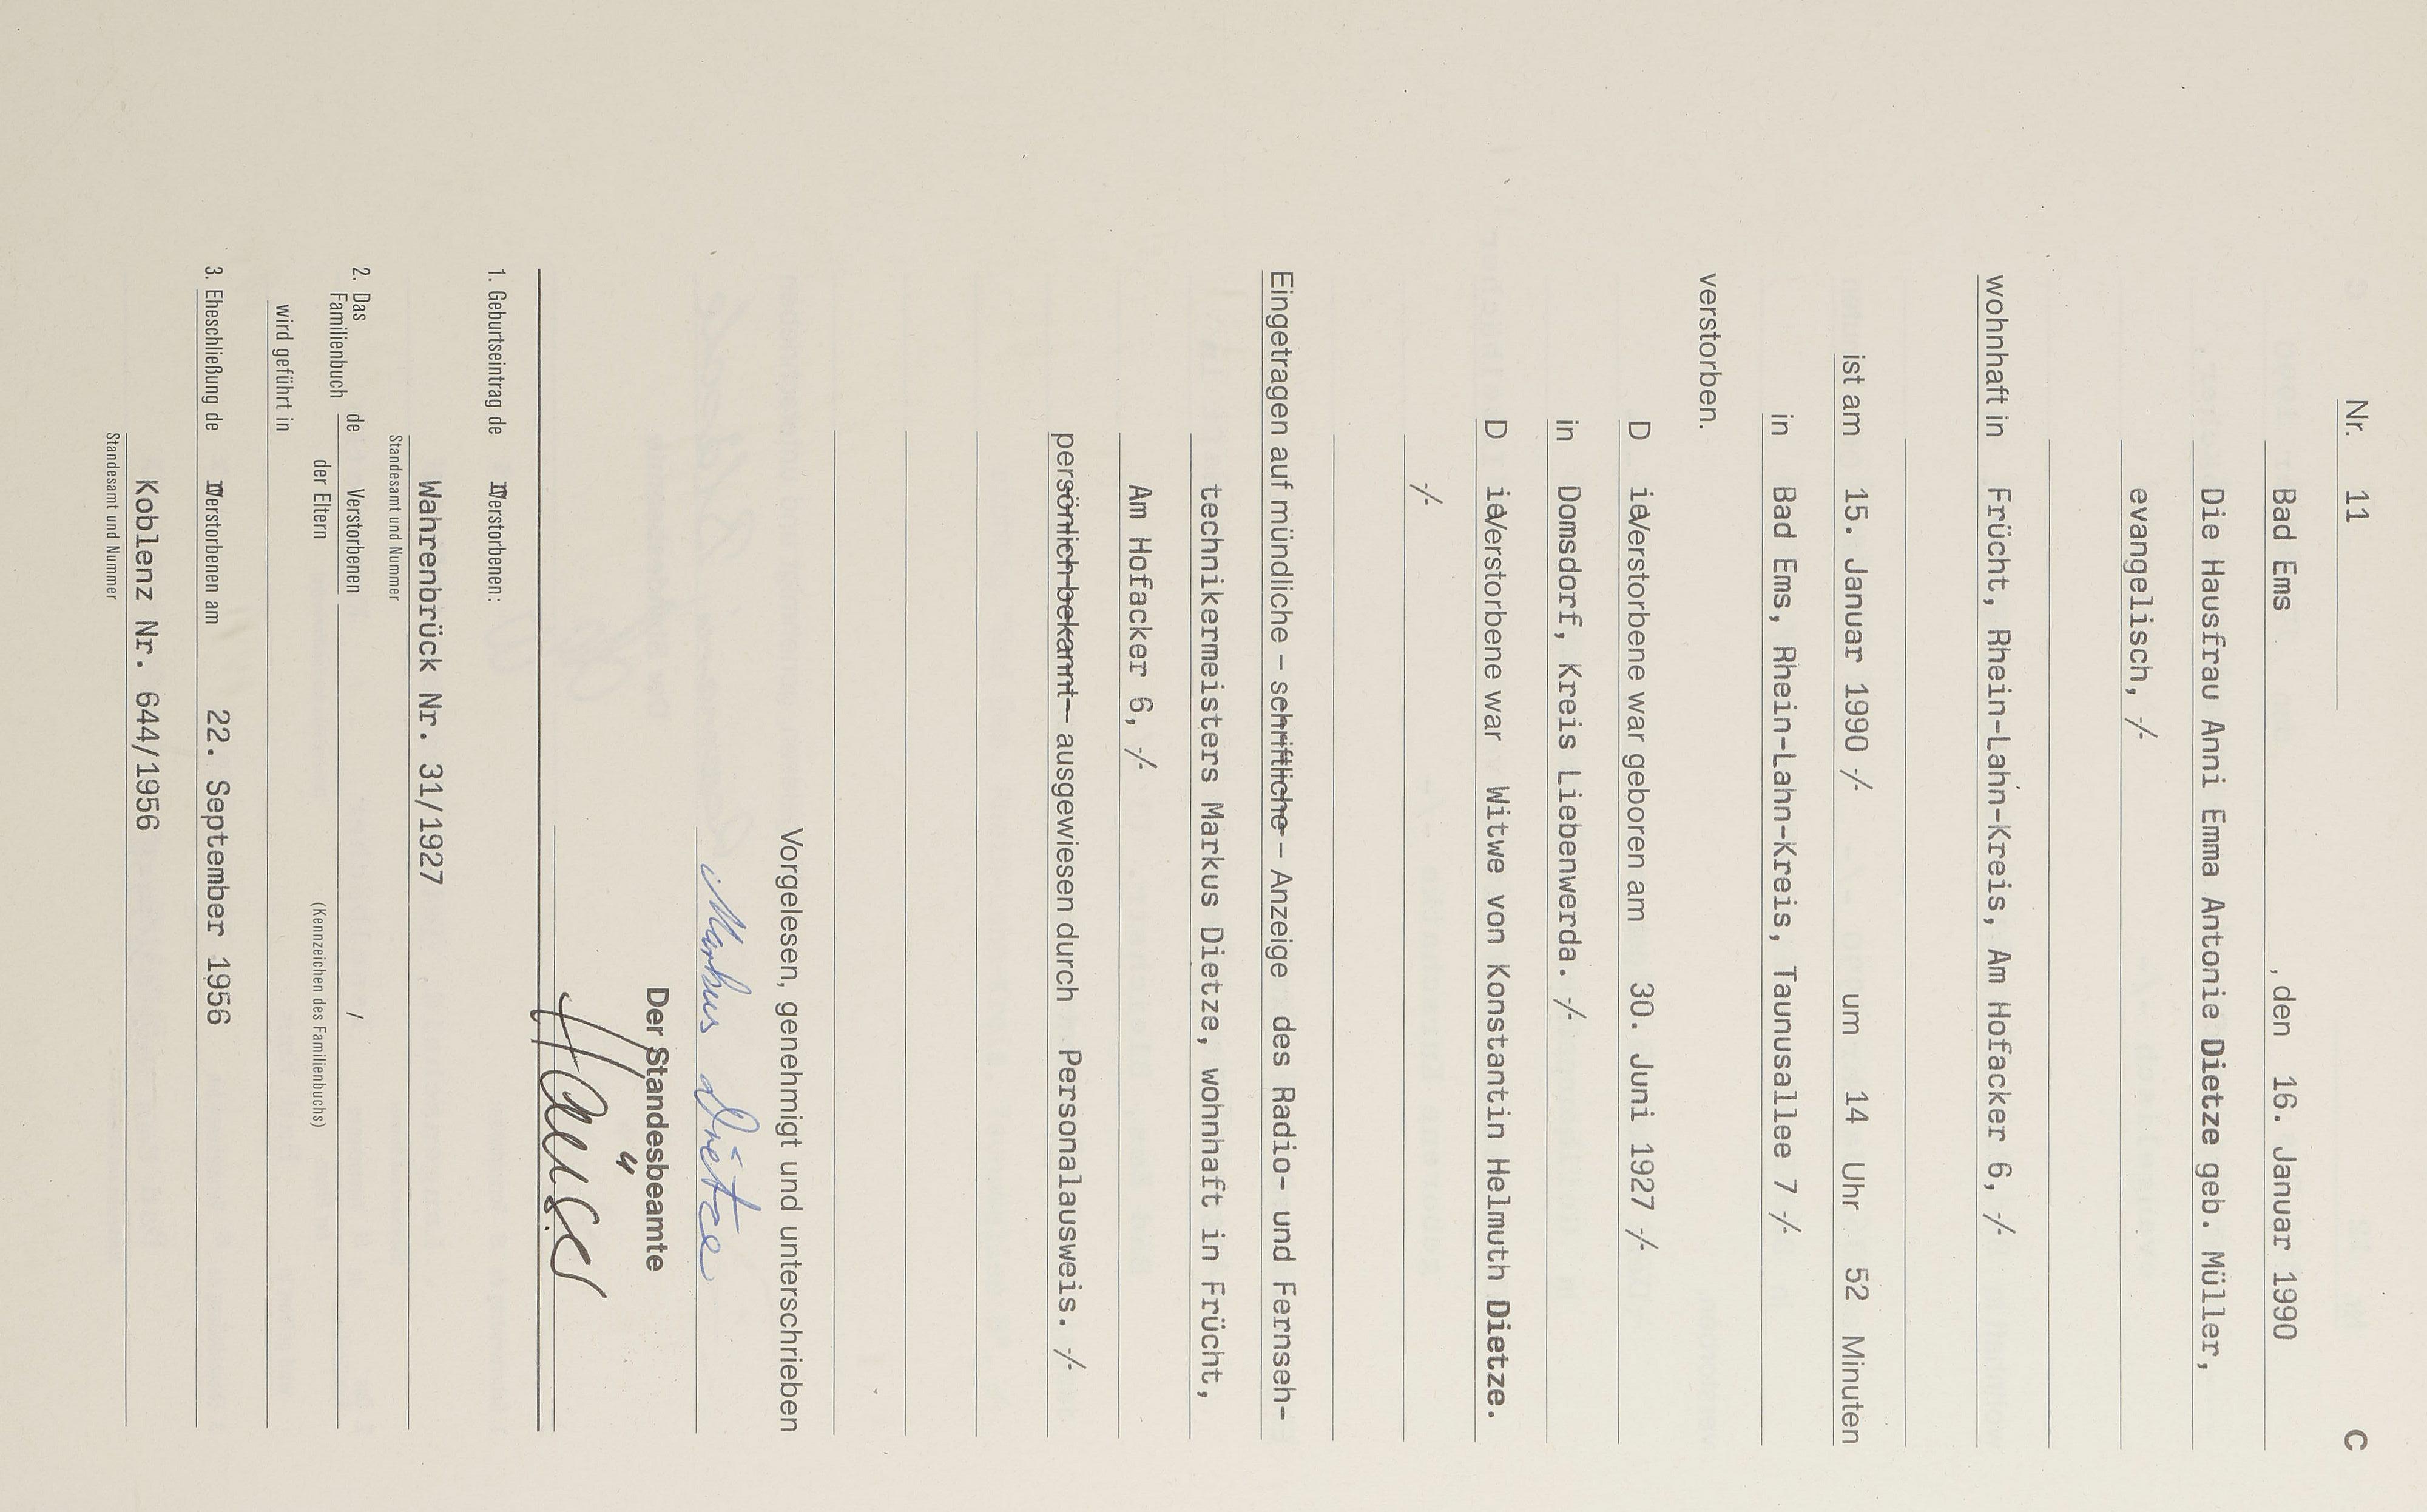 Nr. 11 C
Bad Ems , den 16. Januar 1990
Die Hausfrau Anni Emma Antonie Dietze geb. Müller,
evangelisch, -/-
wohnhaft in Frücht, Rhein-Lahn-Kreis, Am Hofacker 6, -/-
ist am 15. Januar 1990 -/- um 14 Uhr 52 Minuten
in Bad Ems, Rhein-Lahn-Kreis, Taunusallee 7 -/-
verstorben.
Die Verstorbene war geboren am 30. Juni 1927 -/-
in Domsdorf, Kreis Liebenwerda. -/-
Die Verstorbene war Witwe von Konstantin Helmuth Dietze.
-/-
Eingetragen auf mündliche – schriftliche – Anzeige des Radio- und Fernseh-
technikermeisters Markus Dietze, wohnhaft in Frücht,
Am Hofacker 6, -/-
persönlich bekannt – ausgewiesen durch Personalausweis. -/-
Vorgelesen, genehmigt und unterschrieben
Markus Dietze
Der Standesbeamte
1. Geburtseintrag de r Verstorbenen:
Wahrenbrück Nr. 31/1927
Standesamt und Nummer
2. Das Familienbuch de Verstorbenen /
der Eltern (Kennzeichen des Familienbuchs)
wird geführt in
3. Eheschließung de r Verstorbenen am 22. September 1956
Koblenz Nr. 644/1956
Standesamt und Nummer